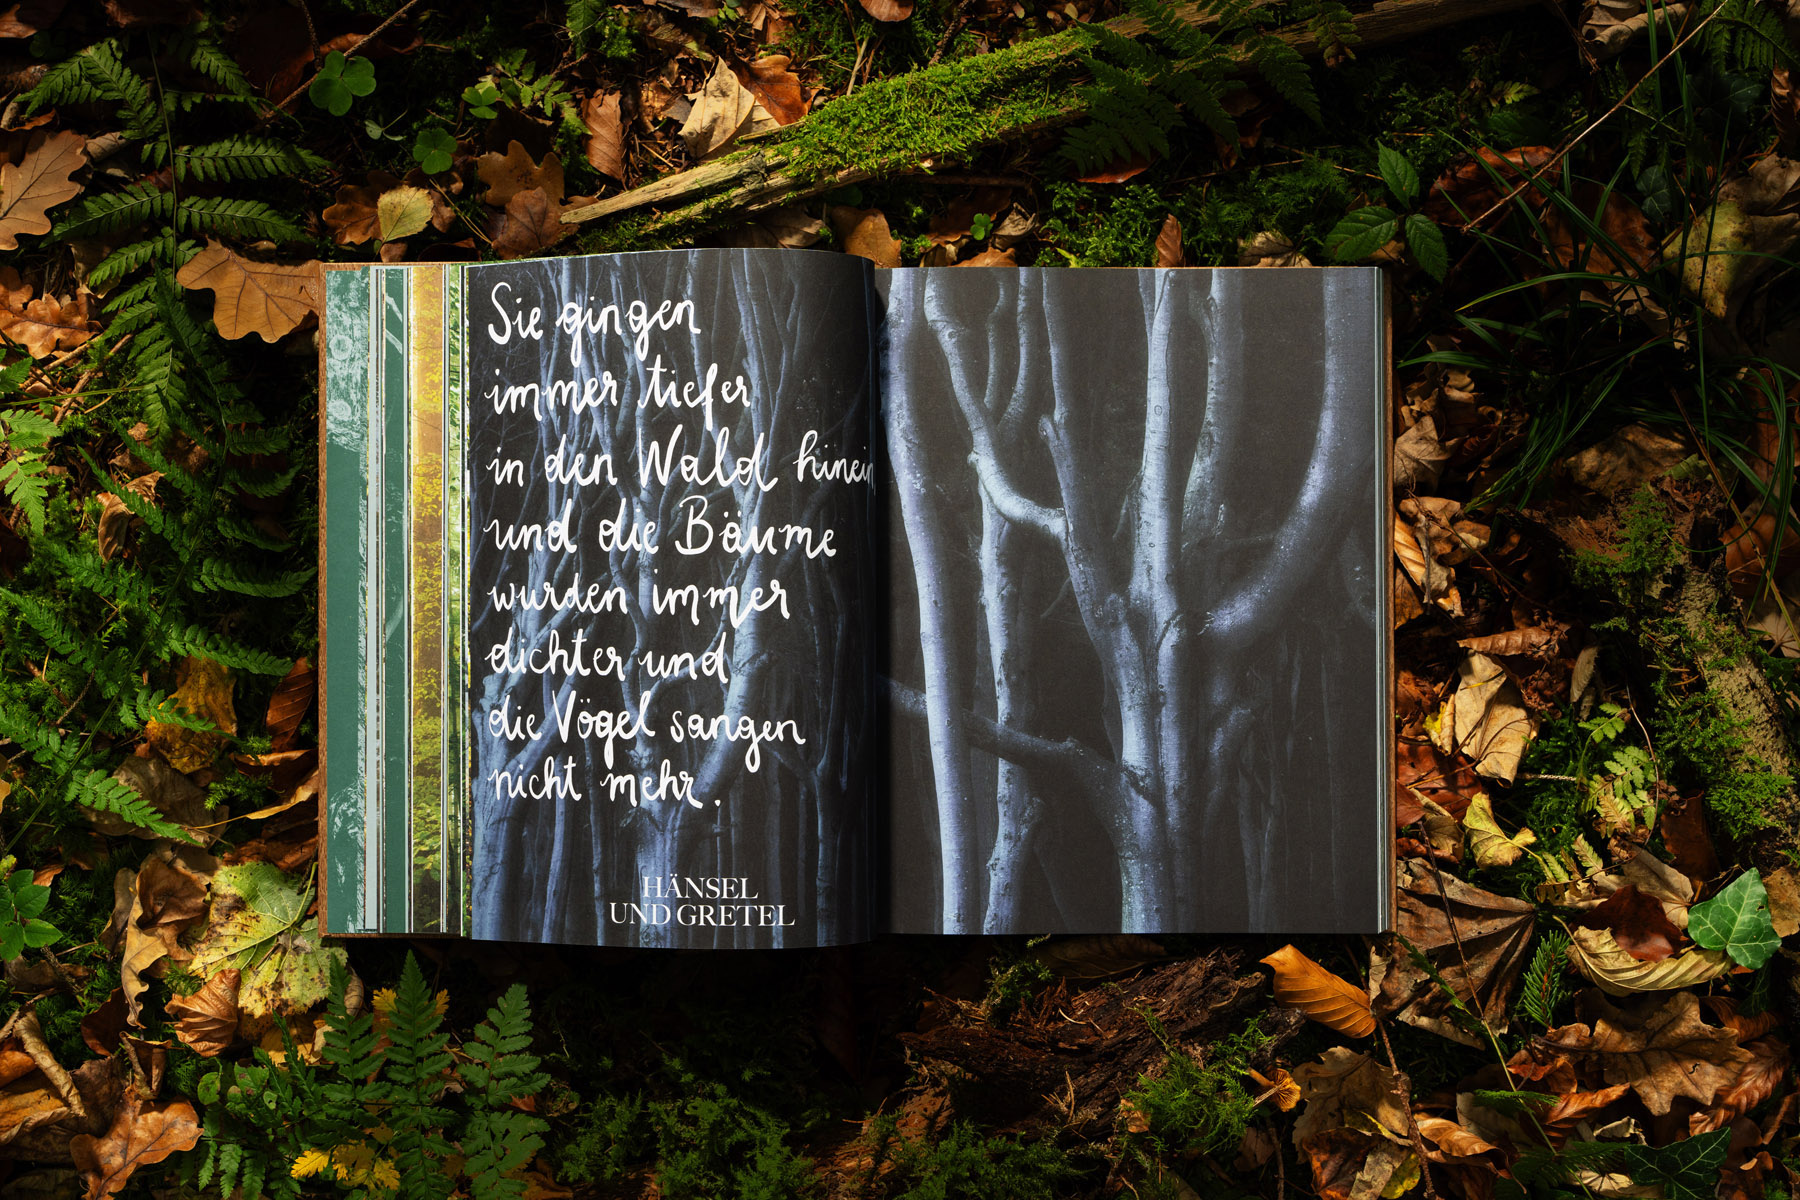 Sie gingen
immer tiefer
in den Wald hinein
und die Bäume
wurden immer
dichter und
die Vögel sangen
nicht mehr.
HÄNSEL
UND GRETEL